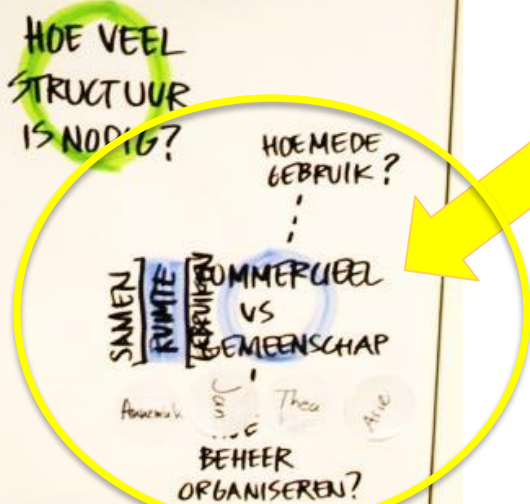 HOE VEEL
STRUCTUUR
IS NODIG?
HOE MEDE
GEBRUIK?
SAMEN
RUIMTE
GEBRUIKEN
COMMERCIEEL
VS
GEMEENSCHAP
Thea
Arie
BEHEER
ORGANISEREN?